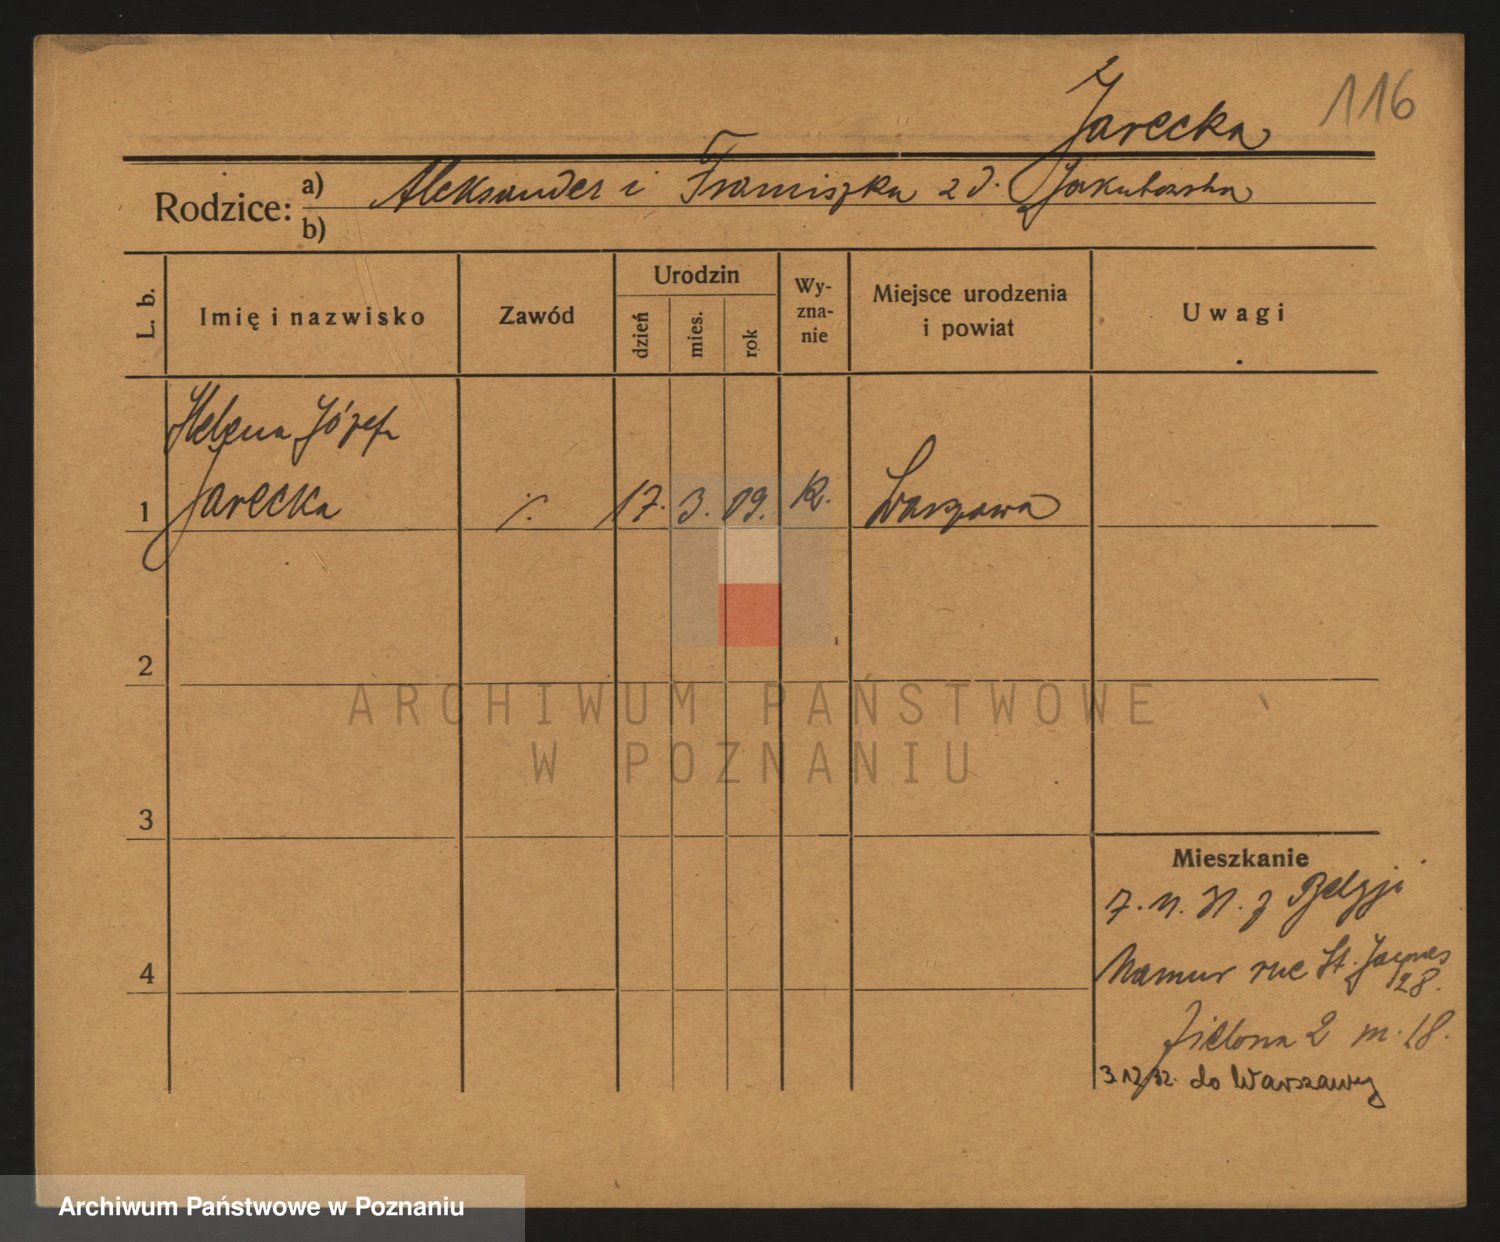 116
Jarecka
Rodzice: a) Aleksander i Franciszka z d. Jakubowska
b)
L. b.
Imię i nazwisko
Zawód
Urodzin
dzień
mies.
rok
Wy-
zna-
nie
Miejsce urodzenia
i powiat
Uwagi
Helena Józefa
1 Jarecka ·/. 17. 3. 09. K. Warszawa
2
3
4
ARCHIWUM PAŃSTWOWE
W POZNANIU
Mieszkanie
7. 11. 31. z Belgji
Namur rue St. Jacques
28.
Zielona 2 m. 18.
3.12/32. do Warszawy
Archiwum Państwowe w Poznaniu